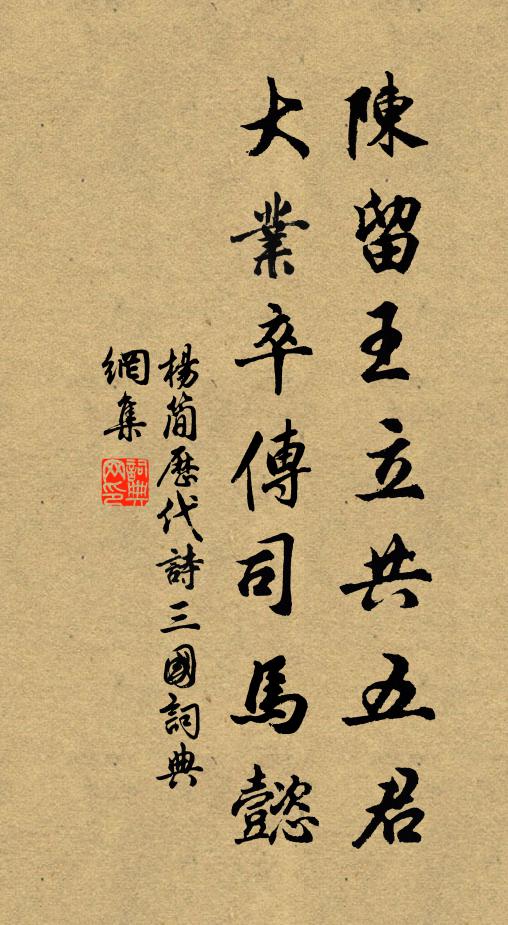 陳留王立共五君
大業卒傳司馬懿
楊簡歷代詩三國詞典
網集
詞典網印